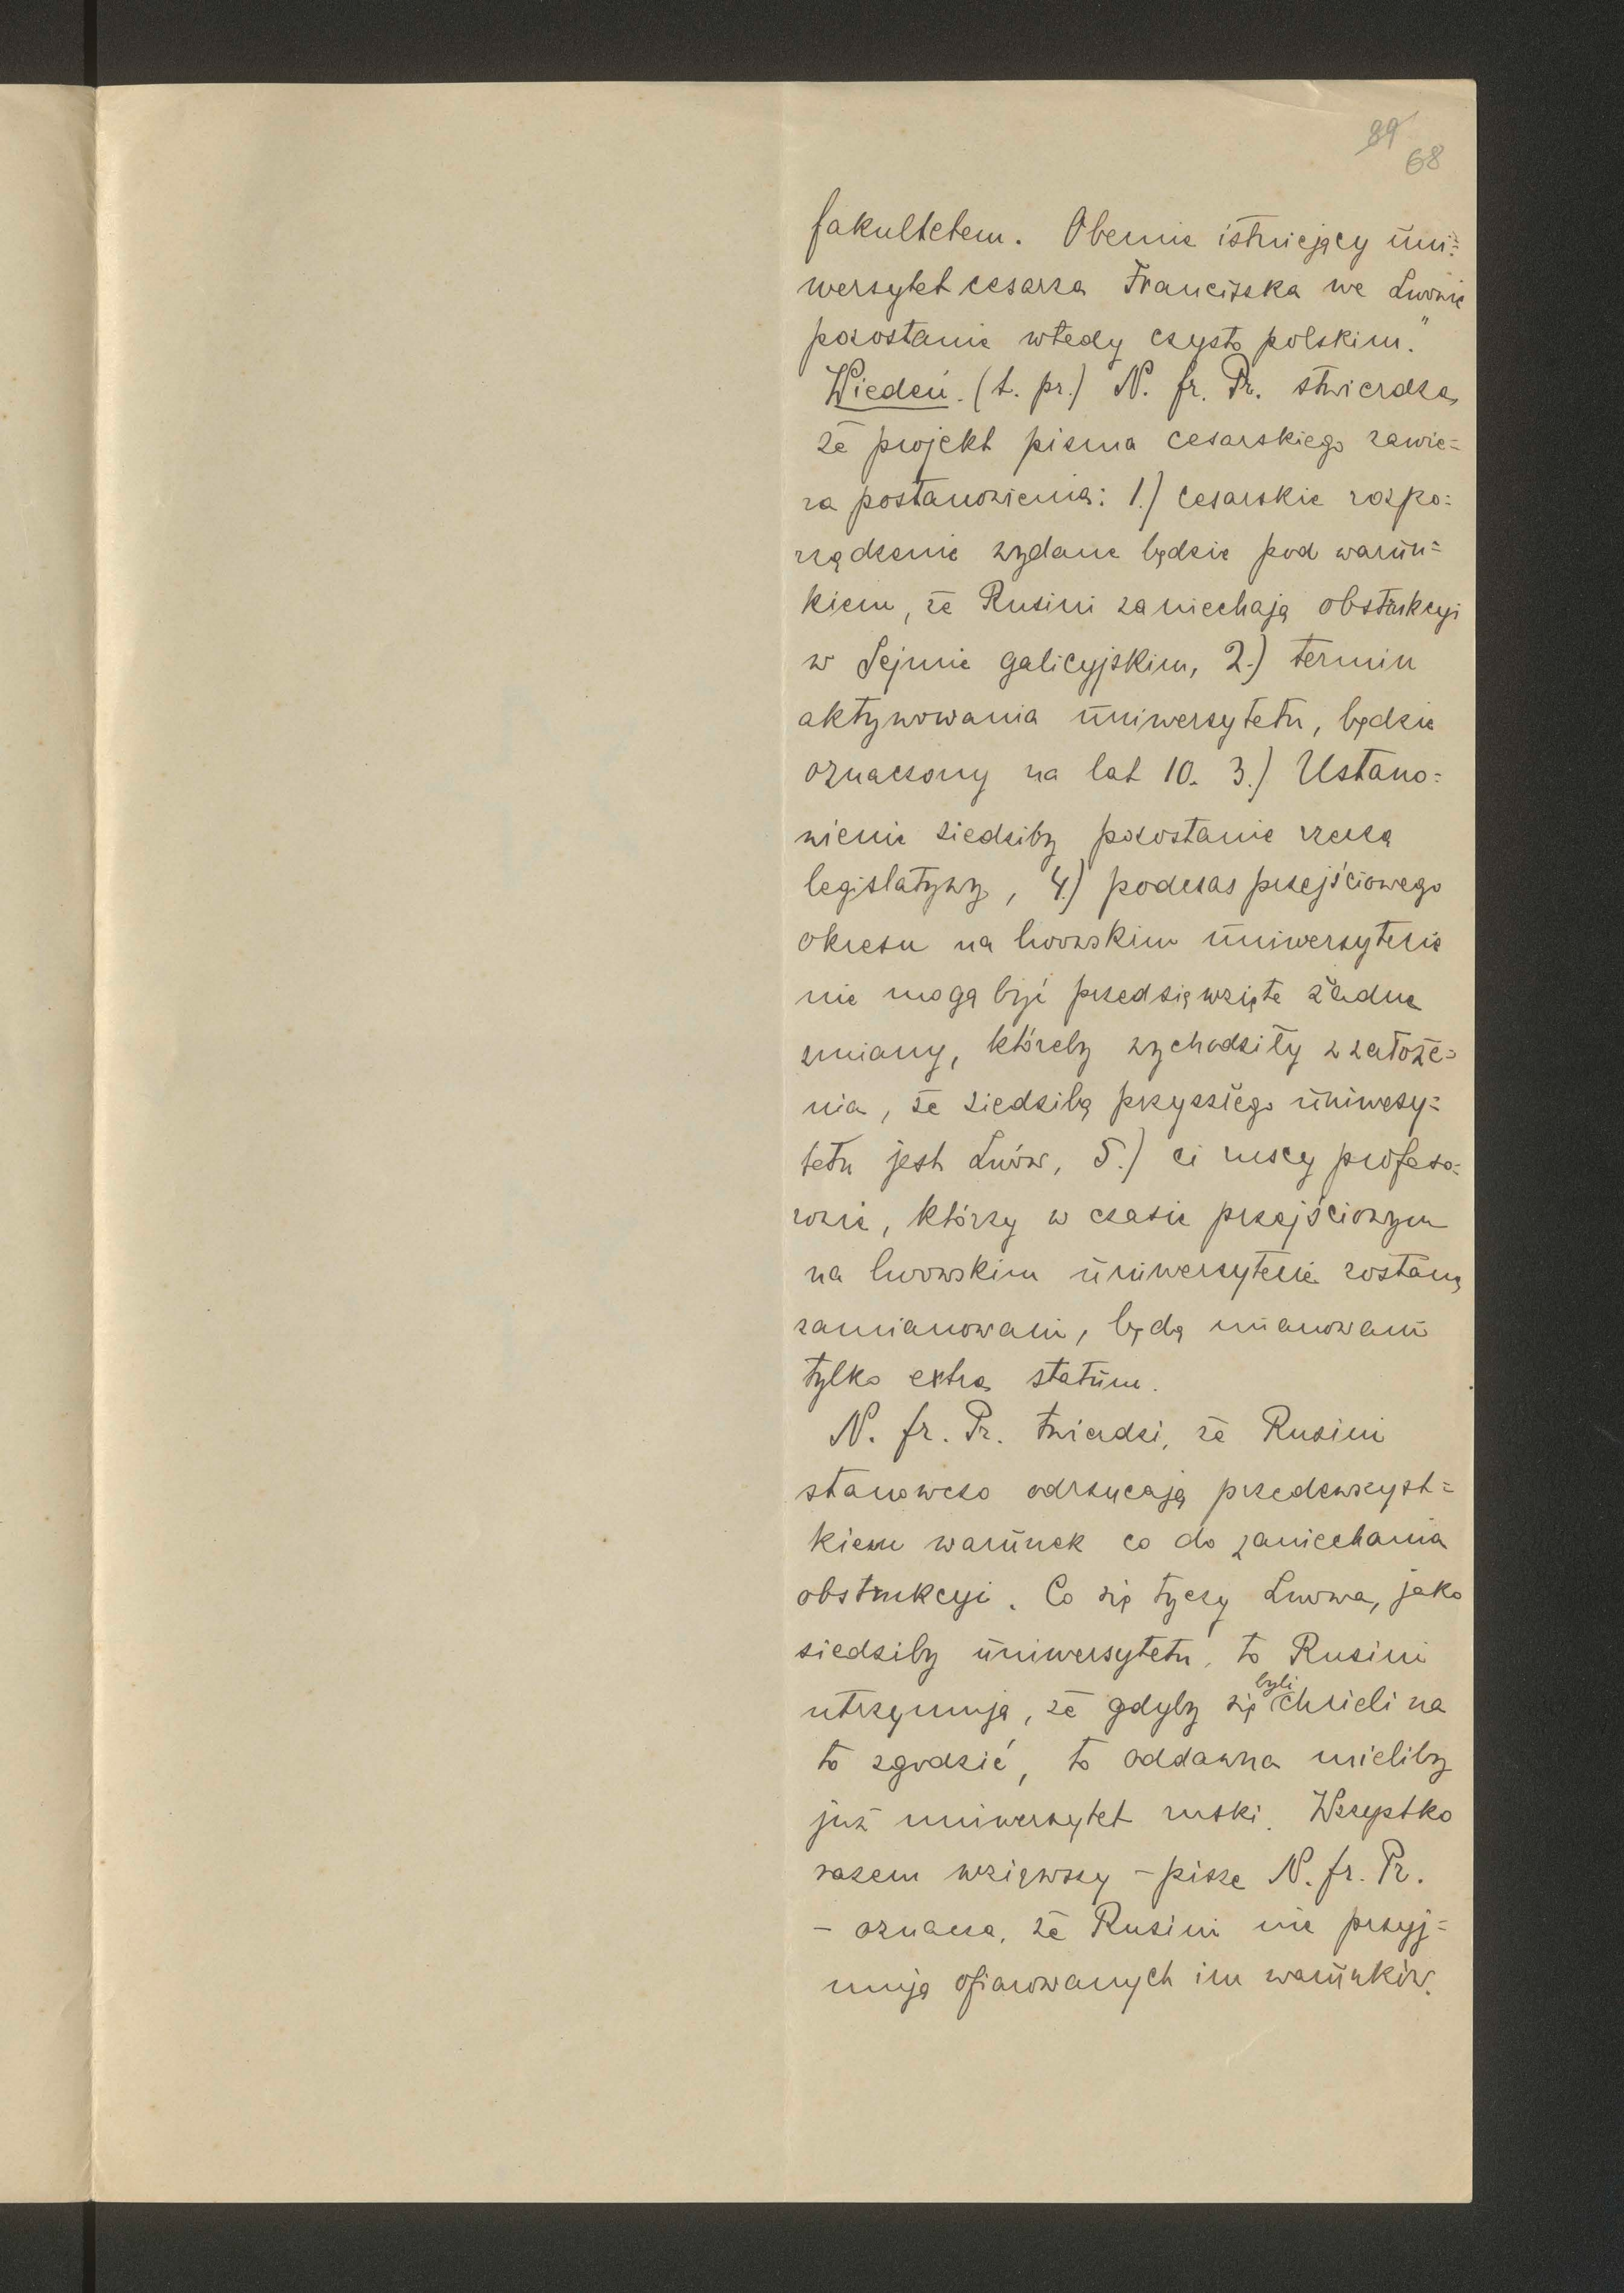 89
68
fakultetem. Obecnie istniejący uni=
wersytet cesarza Franciszka we Lwowie
pozostanie wtedy czysto polskim."
Wiedeń. (t. pr.) N. fr. Pr. stwierdza,
że projekt pisma cesarskiego zawie=
ra postanowienia: 1.) cesarskie rozpo=
rządzenie wydane będzie pod warun=
kiem, że Rusini zaniechają obstrukcyi
w Sejmie galicyjskim, 2.) termin
aktywowania uniwersytetu, będzie
oznaczony na lat 10. 3.) Ustano=
wienie siedziby pozostanie rzeczą
legislatywy, 4.) podczas przejściowego
okresu na lwowskim uniwersytecie
nie mogą być przedsięwzięte żadne
zmiany, któreby wychodziły z założe=
nia, że siedzibą przyszłego uniwesy=
tetu jest Lwów, 5.) ci ruscy profeso=
rowie, którzy w czasie przejściowym
na lwowskim uniwersytecie zostaną
zamianowani, będą mianowani
tylko extra statum.
N. fr. Pr. twierdzi, że Rusini
stanowczo odrzucają przedewszyst=
kiem warunek co do zaniechania
obstrukcyi. Co się tyczy Lwowa, jako
siedziby uniwersytetu, to Rusini
utrzymują, że gdyby się byli chcieli na
to zgodzić, to oddawna mieliby
już uniwersytet ruski. Wszystko
razem wziąwszy - pisze N. fr. Pr.
- oznacza, że Rusini nie przyj=
mują ofiarowanych im warunków.